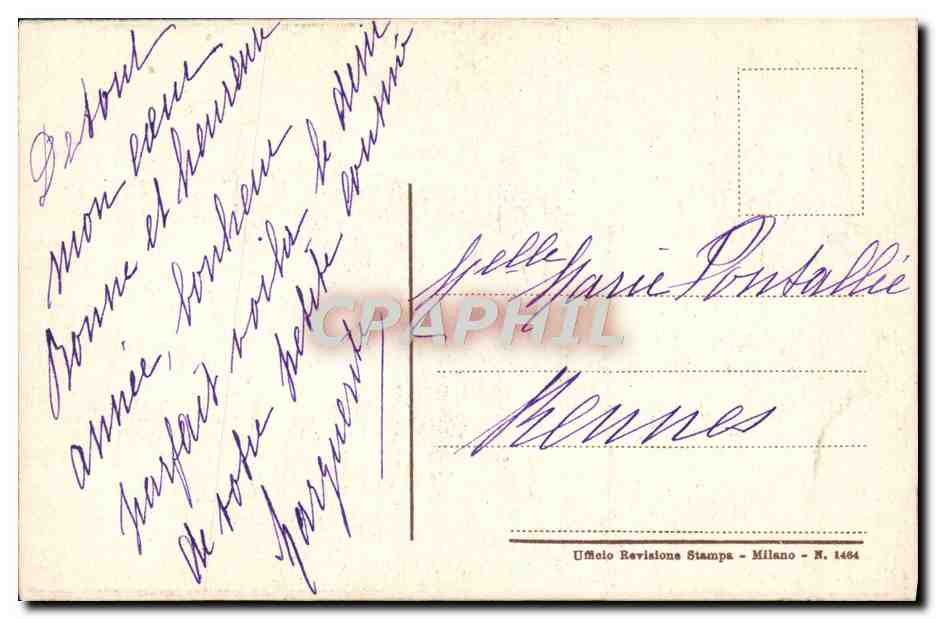 De tout
mon cœur
Bonne et heureuse
année, bonheur
parfait voila le désir
de votre petite cousine
Marguerite
Melle Marie Pontallié
Rennes
CPAPHIL
Ufficio Revisione Stampa - Milano - N. 1464